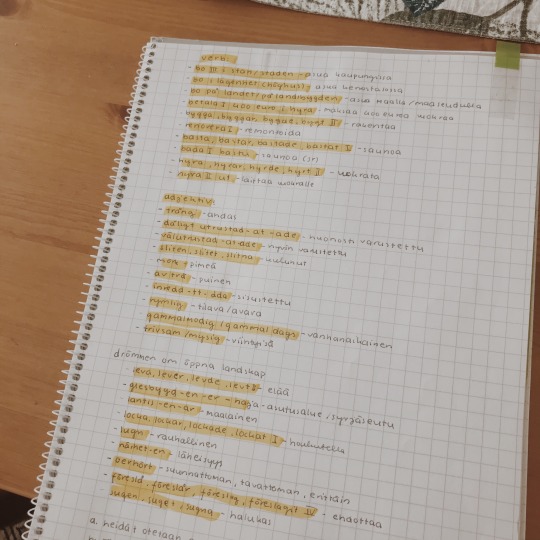 verb:
- bo III i stan/staden - asua kaupungissa
- bo i lägenhet (höghus) - asua kerrostalossa
- bo på landet/på landsbygden - asua maalla/maaseudulla
- betala I 400 euro i hyra - maksaa 400 euroa vuokraa
- bygga, bygger, byggde, byggt II - rakentaa
- renovera I - remontoida
- basta, bastar, bastade, bastat I - saunoa
- bada I bastu - saunoa
- hyra, hyrar, hyrde, hyrt II - vuokrata
- hyra II ut - laittaa vuokralle
adjektiv:
- trång - ahdas
- dåligt utrustad -at -ade - huonosti varustettu
- välutrustad -at -ade - hyvin varustettu
- sliten, slitet, slitna - kulunut
- mörk - pimeä
- av trä - puinen
- inredd -tt -dda - sisustettu
- rymlig - tilava/avara
- gammalmodig/gammaldags - vanhanaikainen
- trivsam/mysig - viihtyisä
drömmen om öppna landskap
leva, lever, levde, levt - elää
- glesbygd -en -er -na - haja-asutusalue, syrjäseutu
lantis -en -ar - maalainen
- locka, lockar, lockade, lockat I - houkutella
- lugn - rauhallinen
- närhet -en - läheisyys
- oerhört - suunnattoman, tavattoman, erittäin
- föreslå, föreslår, föreslog, föreslagit IV - ehdottaa
sugen, suget, sugna - halukas
a. heidät otetaan